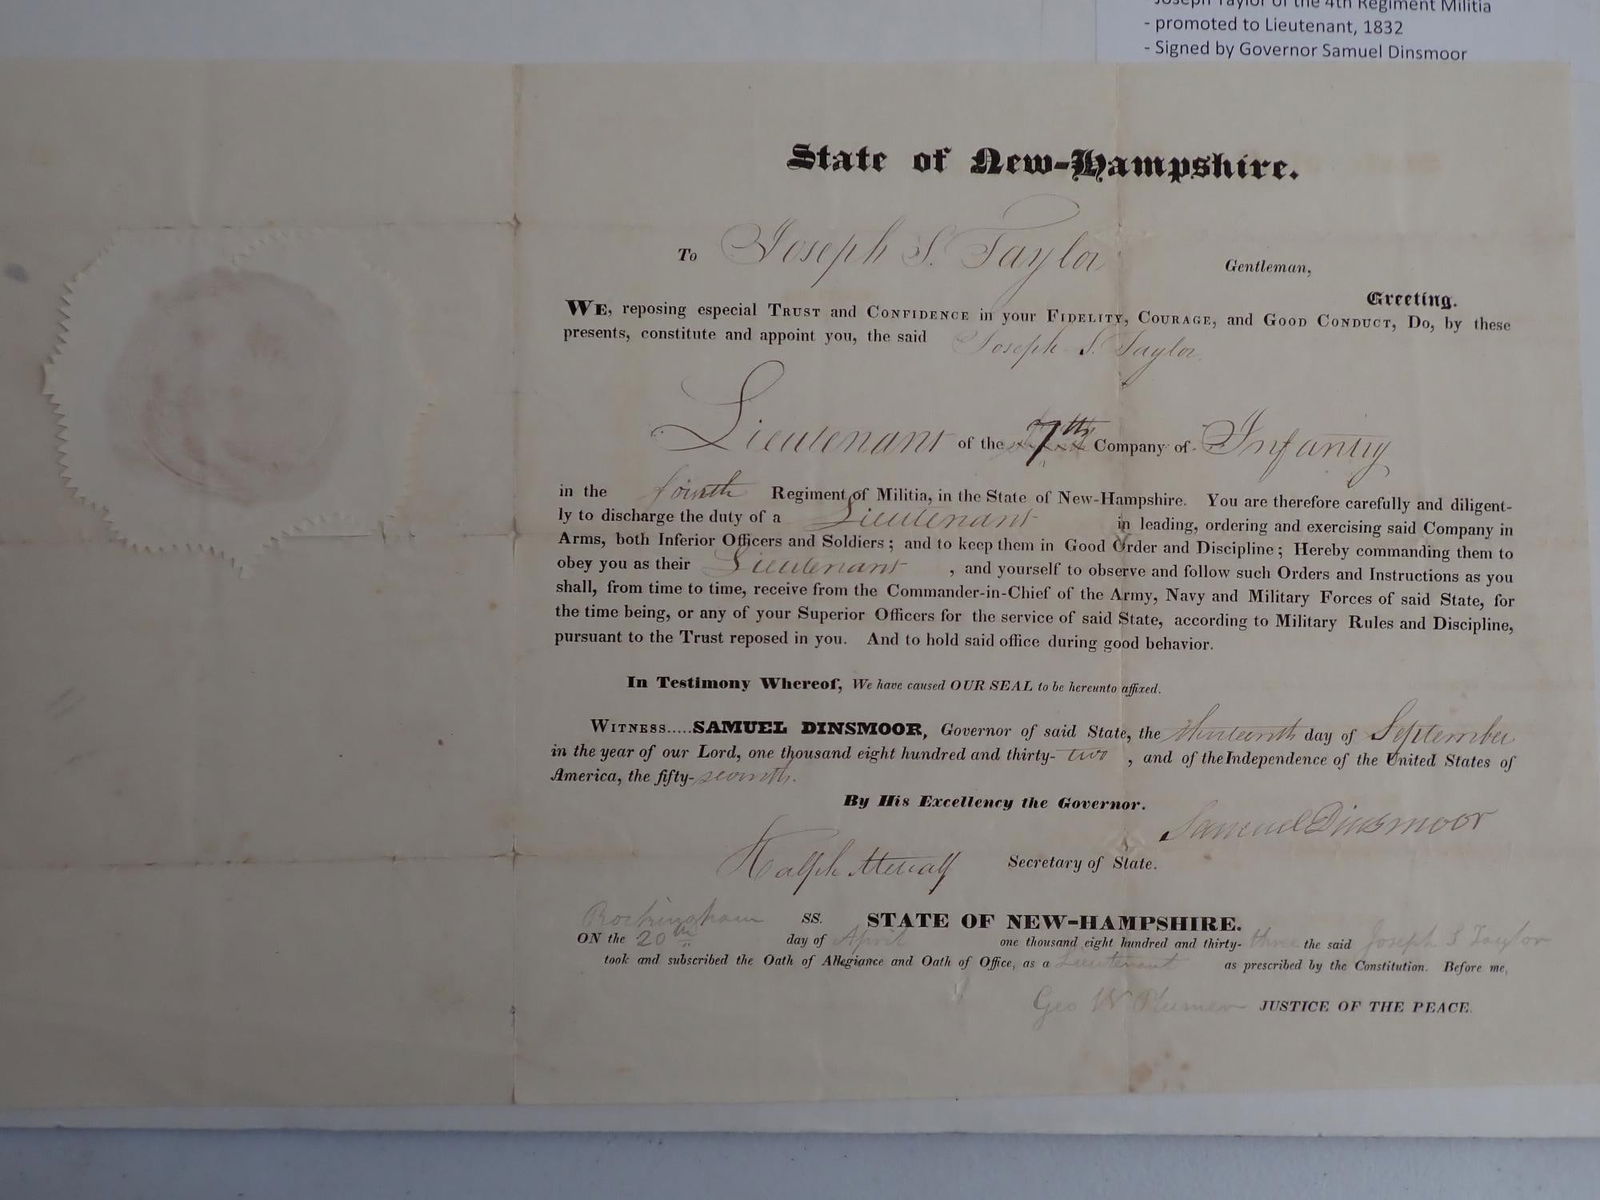 Joseph Taylor of the 4th Regiment Militia
- promoted to Lieutenant, 1832
- Signed by Governor Samuel Dinsmoor
State of New-Hampshire.
To Joseph S. Taylor Gentleman,
Greeting.
WE, reposing especial TRUST and CONFIDENCE in your FIDELITY, COURAGE, and GOOD CONDUCT, Do, by these
presents, constitute and appoint you, the said Joseph S. Taylor
Lieutenant of the 7th Company of Infantry
in the fourth Regiment of Militia, in the State of New-Hampshire. You are therefore carefully and diligent-
ly to discharge the duty of a Lieutenant in leading, ordering and exercising said Company in
Arms, both Inferior Officers and Soldiers; and to keep them in Good Order and Discipline; Hereby commanding them to
obey you as their Lieutenant , and yourself to observe and follow such Orders and Instructions as you
shall, from time to time, receive from the Commander-in-Chief of the Army, Navy and Military Forces of said State, for
the time being, or any of your Superior Officers for the service of said State, according to Military Rules and Discipline,
pursuant to the Trust reposed in you. And to hold said office during good behavior.
In Testimony Whereof, We have caused OUR SEAL to be hereunto affixed.
WITNESS.....SAMUEL DINSMOOR, Governor of said State, the thirteenth day of September
in the year of our Lord, one thousand eight hundred and thirty-two , and of the Independence of the United States of
America, the fifty-seventh.
By His Excellency the Governor.
Samuel Dinsmoor
Ralph Metcalf Secretary of State.
Rockingham SS. STATE OF NEW-HAMPSHIRE.
ON the 20th day of April one thousand eight hundred and thirty-three the said Joseph S Taylor
took and subscribed the Oath of Allegiance and Oath of Office, as a Lieutenant as prescribed by the Constitution. Before me,
Geo W Plumer JUSTICE OF THE PEACE.